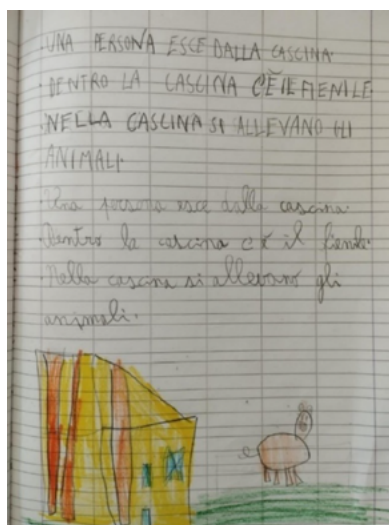 UNA PERSONA ESCE DALLA CASCINA.
DENTRO LA CASCINA C'È IL FIENILE.
NELLA CASCINA SI ALLEVANO GLI
ANIMALI.
Una persona esce dalla cascina.
Dentro la cascina c'è il fienile.
Nella cascina si allevano gli
animali.